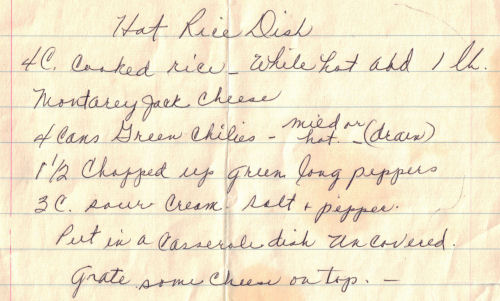 Hot Rice Dish
4 C. Cooked rice - While hot add 1 lb.
Montarey Jack Cheese
4 Cans Green Chilies - mild or hot. - (drain)
1 1/2 Chopped up green long peppers
3 C. sour cream salt + pepper.
Put in a Casserole dish uncovered.
Grate some cheese on top. -